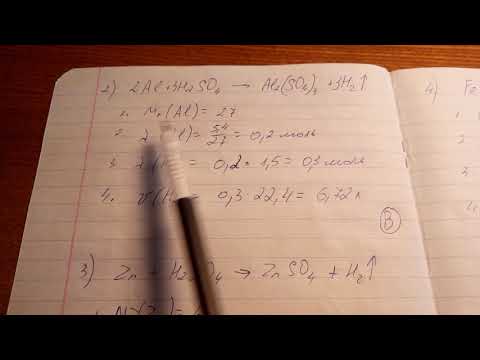 2) 2Al + 3H₂SO₄ → Al₂(SO₄)₃ + 3H₂↑
1. Mᵣ(Al) = 27
2. l) = 5,4/27 = 0,2 моль
3. = 0,2 · 1,5 = 0,3 моль
4. V(H = 0,3 · 22,4 = 6,72 л
В
3) Zn + H₂ O₄ → ZnSO₄ + H₂↑
4) Fe
1
2
3.
4